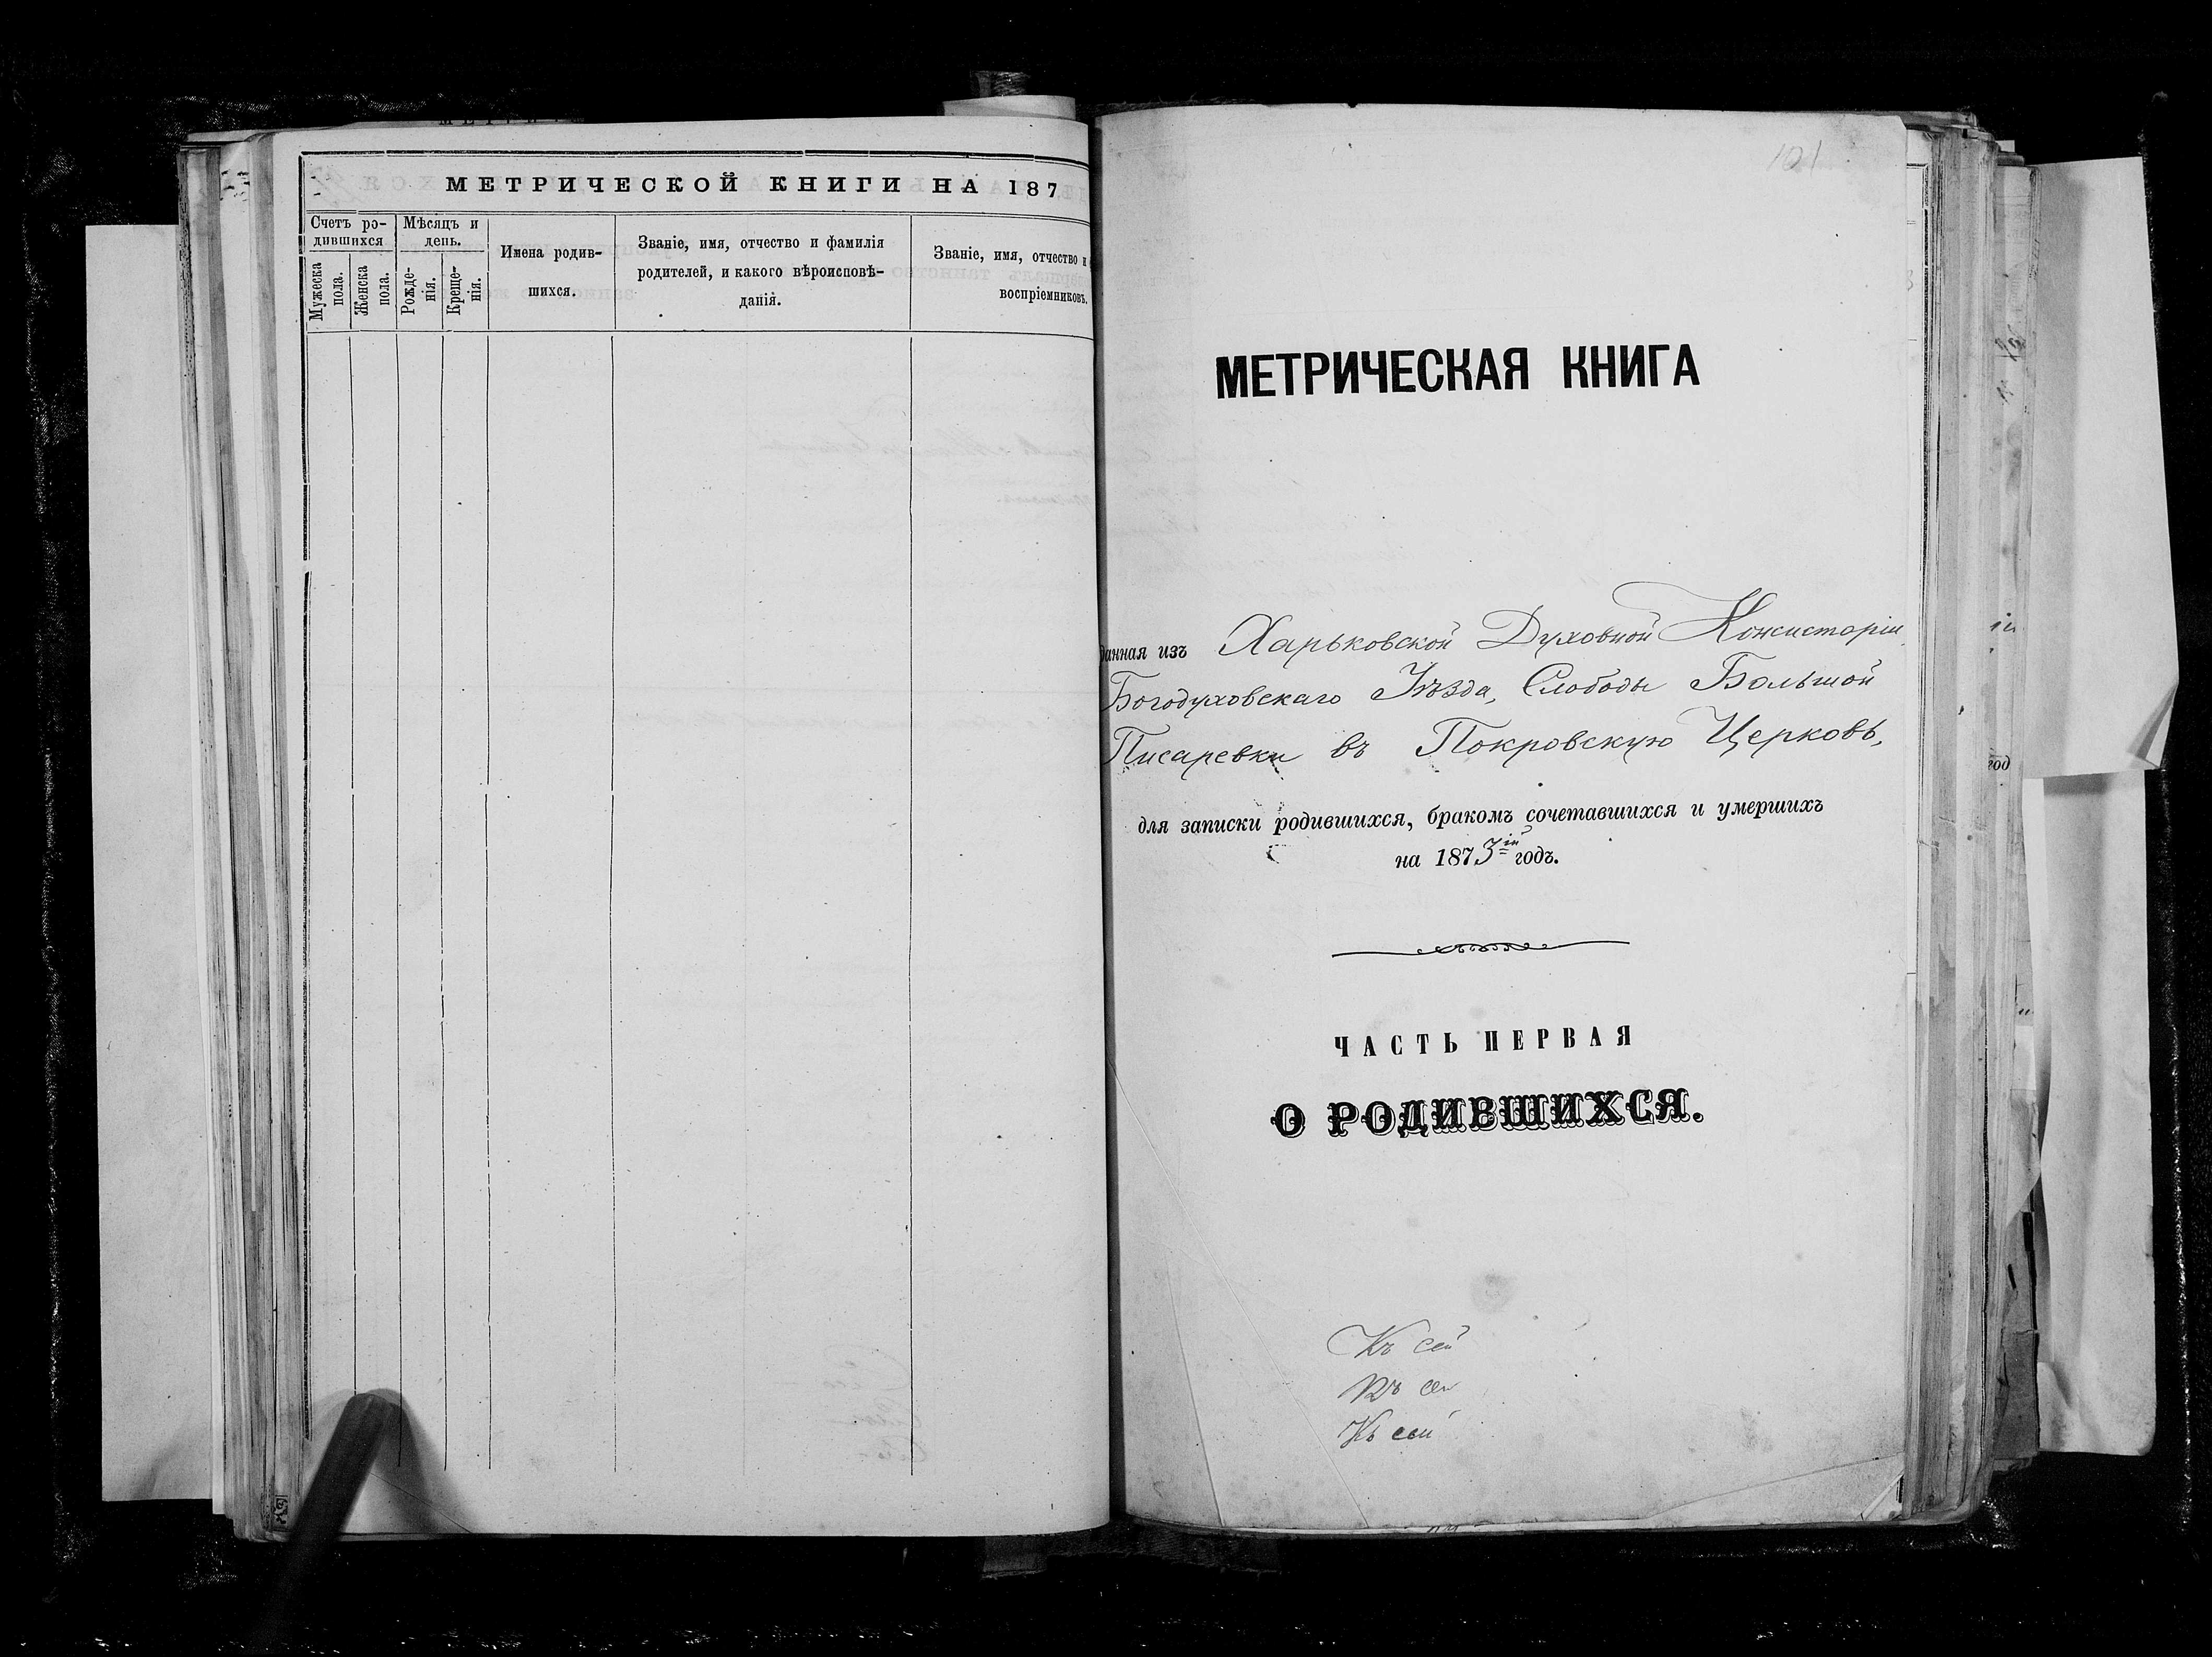 МЕТРИЧЕСКОЙ КНИГИ НА 187
Счетъ ро-
дившихся
Мѣсяцъ и
день.
Мужеска
пола.
Женска
пола.
Рожде-
нія.
Креще-
нія.
Имена родив-
шихся.
Званіе, имя, отчество и фамилія
родителей, и какого вѣроисповѣ-
данія.
Званіе, имя, отчество и
воспріемниковъ.
101
МЕТРИЧЕСКАЯ КНИГА
данная изъ Харьковской Духовной Консисторіи
Богодуховскаго Уѣзда, Слободы Большой
Писаревки въ Покровскую Церковь,
для записки родившихся, бракомъ сочетавшихся и умершихъ
на 1873ій годъ.
ЧАСТЬ ПЕРВАЯ
О РОДИВШИХСЯ.
Къ сей
Къ сей
Къ сей